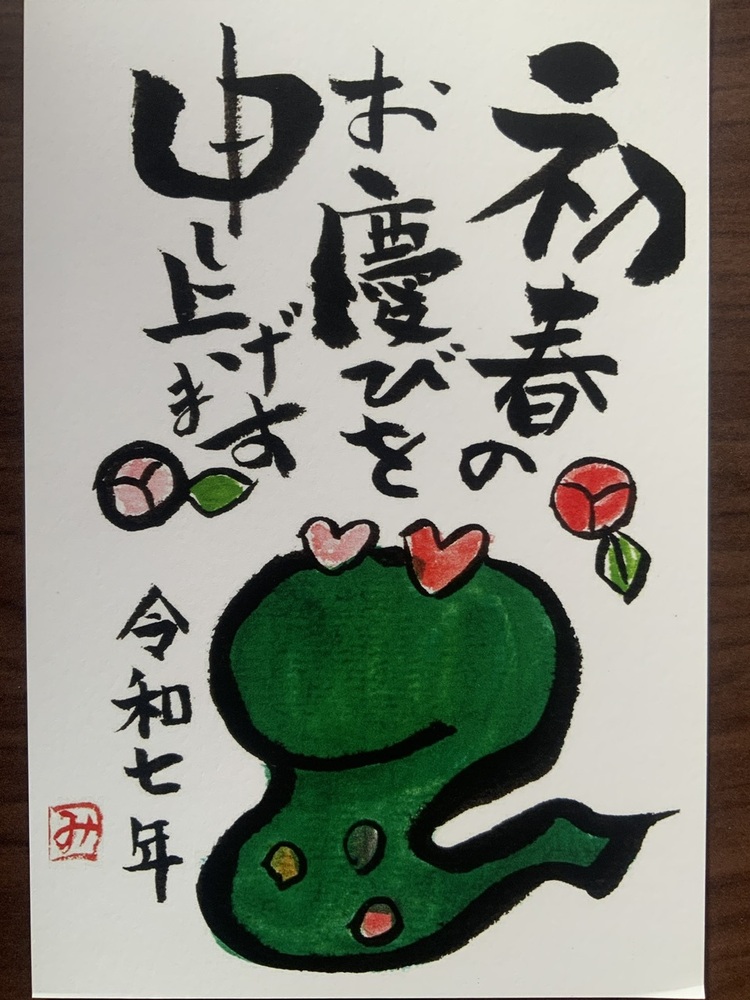 初春の
お慶びを
申し上げます
令和七年
み